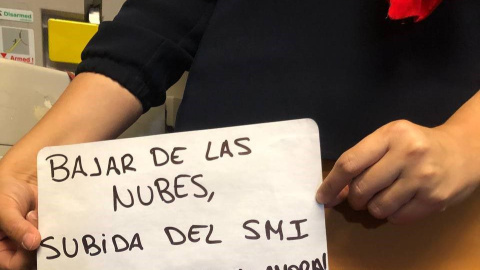 Disarmed
Armed!
BAJAR DE LAS
NUBES,
SUBIDA DEL SMI